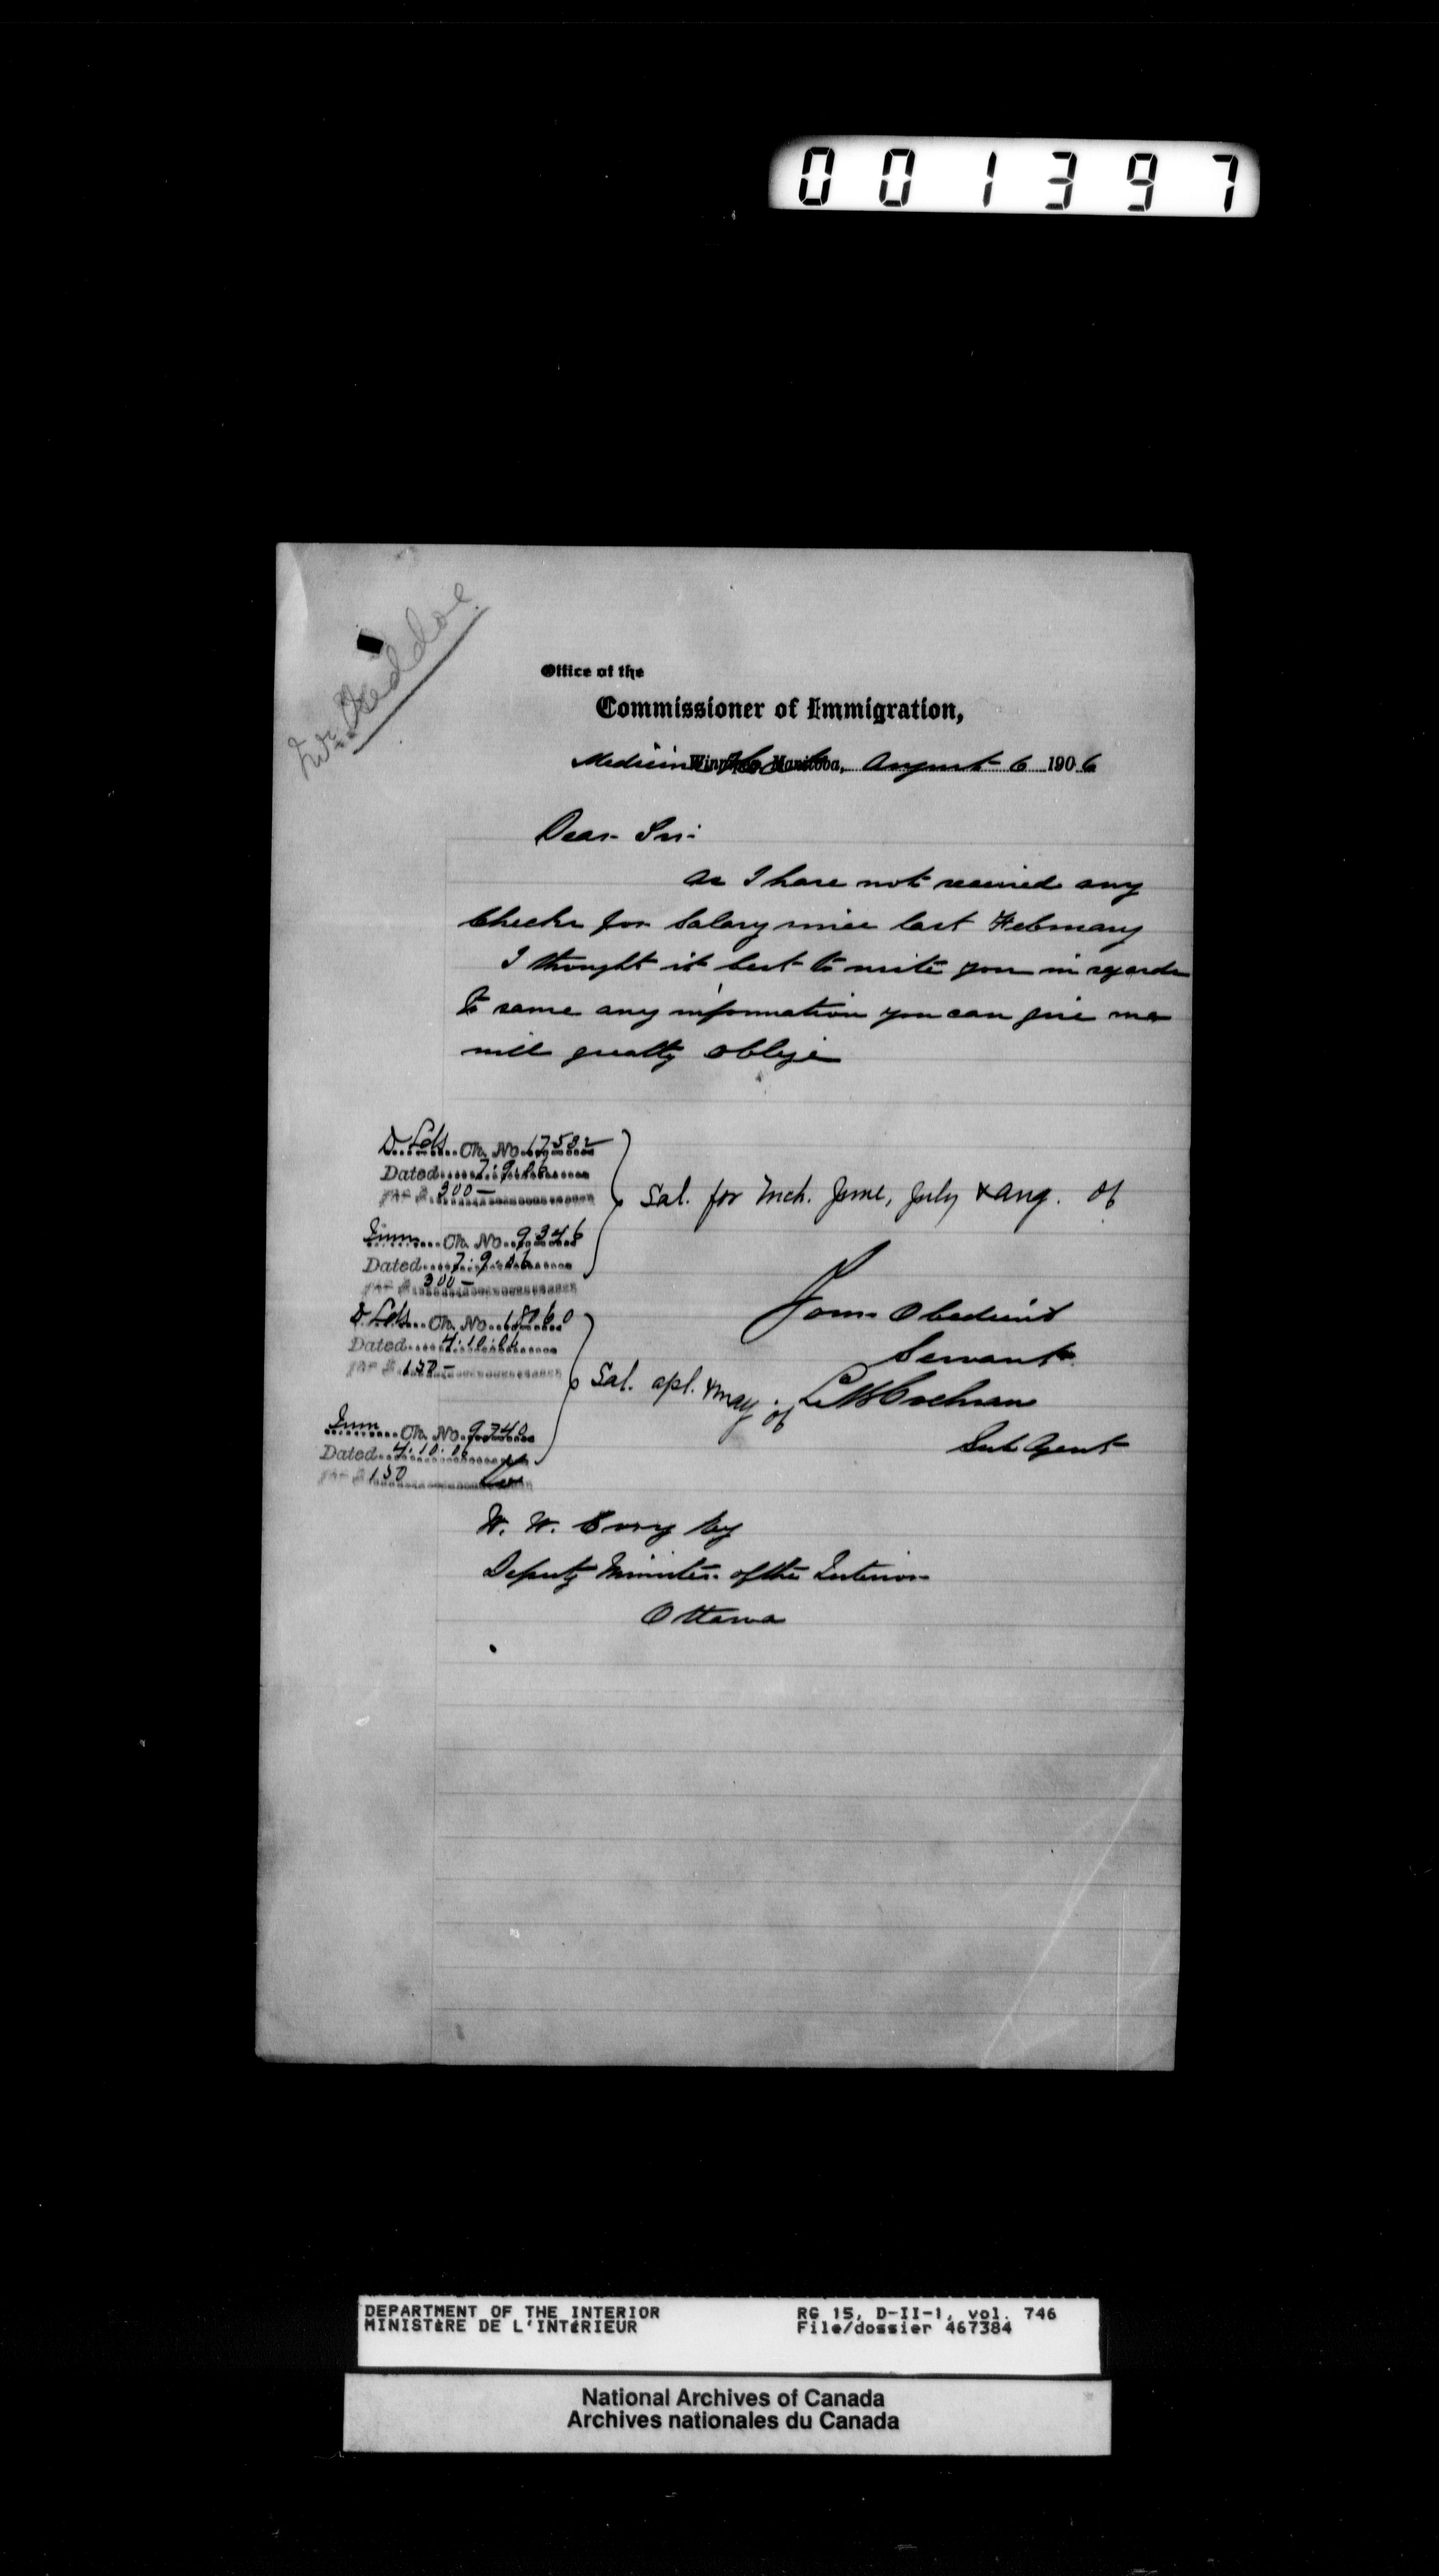 001397
Mr. Beddoe
Office of the
Commissioner of Immigration,
Medicine Hat Winnipeg, Manitoba, August 6 1906
Dear Sir:
As I have not received any
Checks for Salary since last February
I thought it best to write you in regards
to same any information you can give me
will greatly oblige
D. Lds Ch. No. 17582
Dated 7.9.06
for $ 300 -
Imm Ch. No. 9346
Dated 7.9.06
for $ 300 -
Sal. for Mch. June, July & Aug. 06
Your Obedient
Servant
D. Lds Ch. No. 18060
Dated 4.10.06
for $ 150 -
Imm Ch. No. 9740
Dated 4.10.06
for $ 150
Sal. apl. & May 06
Cochran
Sub Agent
To
W. W. Cory Esq
Deputy Minister of the Interior
Ottawa
DEPARTMENT OF THE INTERIOR RG 15, D-II-1, vol. 746
MINISTÈRE DE L'INTÉRIEUR File/dossier 467384
National Archives of Canada
Archives nationales du Canada